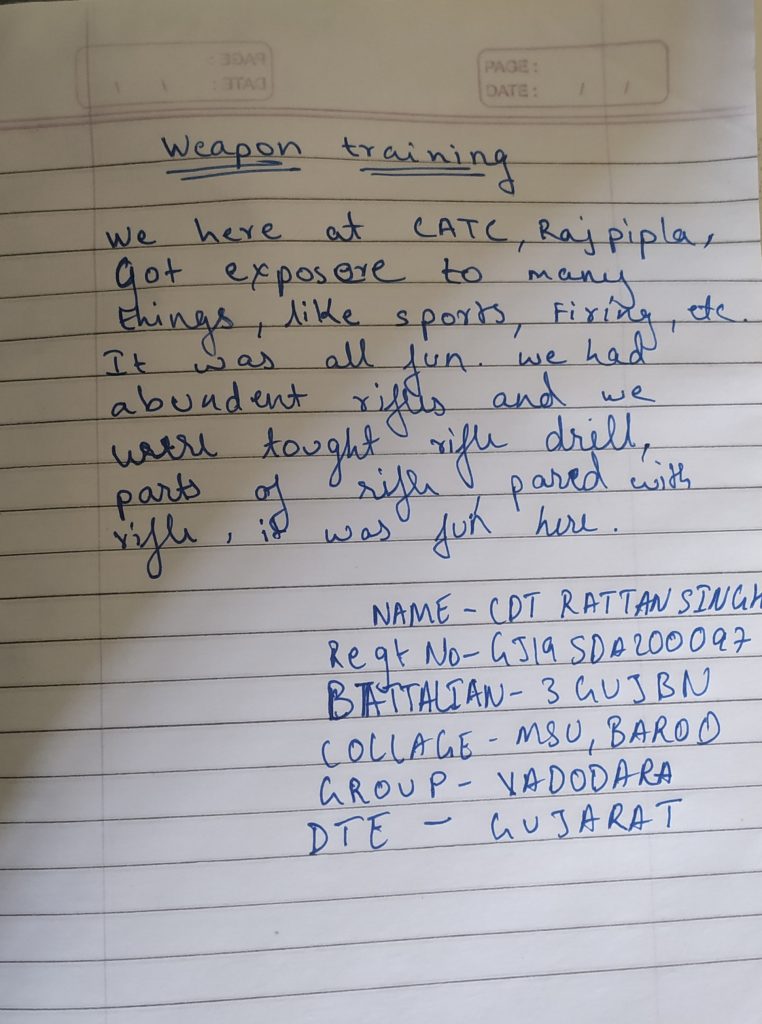 PAGE :
DATE : / /
Weapon training
We here at CATC, Rajpipla,
Got exposere to many
things, like sports, Firing, etc.
It was all fun. we had
abundent rifles and we
were tought rifle drill,
parts of rifle, pared with
rifle, it was fun here.
NAME - CDT RATTAN SINGH
Regt No- GJ19 SDA200097
BATTALIAN - 3 GUJ BN
COLLAGE - MSU, BAROD
GROUP - VADODARA
DTE - GUJARAT